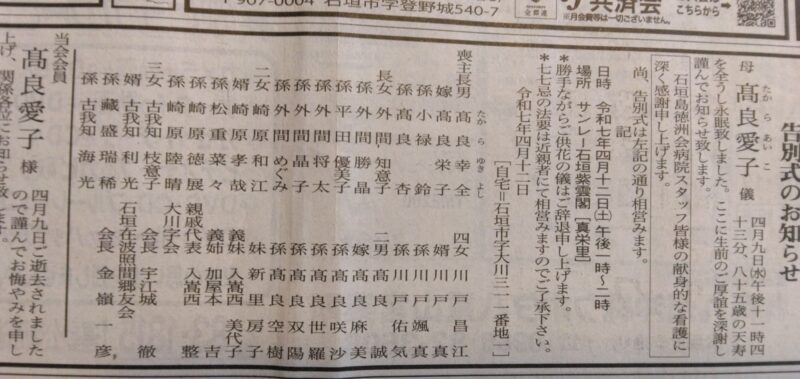 〒907-0004 石垣市字登野城540-7
共済会
※月会費等は一切ございません。
こちらから
告別式のお知らせ
母 髙良愛子 儀
たから あいこ
四月九日㈬午後十一時四
十三分、八十五歳の天寿
を全うし永眠致しました。ここに生前のご厚誼を深謝し
謹んでお知らせ致します。
石垣島徳洲会病院スタッフ皆様の献身的な看護に
深く感謝申し上げます。
尚、告別式は左記の通り相営みます。
記
日時 令和七年四月十二日㈯午後一時〜二時
場所 サンレー石垣紫雲閣[真栄里]
*勝手ながらご供花の儀はご辞退申し上げます。
*七七忌の法要は近親者にて相営みますのでご了承下さい。
令和七年四月十二日
[自宅=石垣市字大川三一一番地一]
喪主 長男 髙良幸全
たから ゆきよし
嫁 髙良栄子
孫 小禄鈴
孫 髙良杏
長女 外間知意子
婿 外間勝晶
孫 平田優美子
孫 外間将太
孫 外間晶子
孫 外間めぐみ
二女 﨑原和江
婿 﨑原孝哉
孫 松重菜々
孫 﨑原徳展
孫 﨑原陸晴
三女 古我知枝意子
婿 古我知利光
孫 藏盛瑞稀
孫 古我知海光
四女 川戸昌江
婿 川戸真
孫 川戸颯真
孫 川戸佑気
二男 髙良誠
嫁 髙良麻美
孫 髙良咲沙
孫 髙良世羅
孫 髙良双陽
孫 髙良空樹
妹 新里房子
義妹 入嵩西美代子
義姉 加屋本吉
親戚代表 入嵩西整
大川字会
会長 宇江城徹
石垣在波照間郷友会
会長 金嶺一彦
当会会員
髙良愛子 様
四月九日ご逝去されました
ので謹んでお悔やみを申し
上げ、関係各位にお知らせ致します。